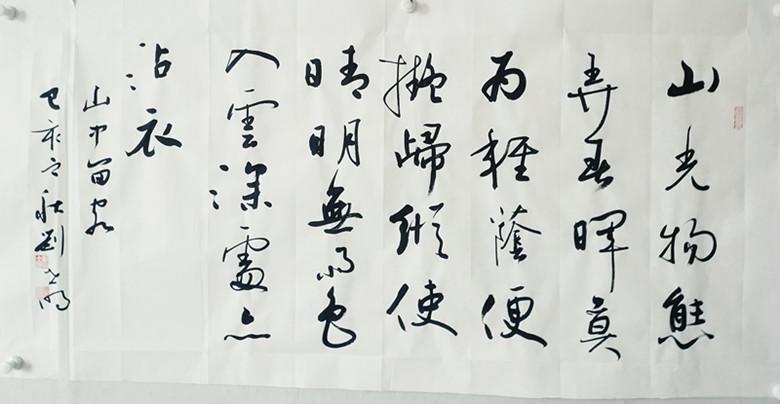 山光物態
弄春暉莫
為輕蔭便
擬歸縱使
晴明無雨色
入雲深處亦
沾衣
山中留客
己亥之秋劉明